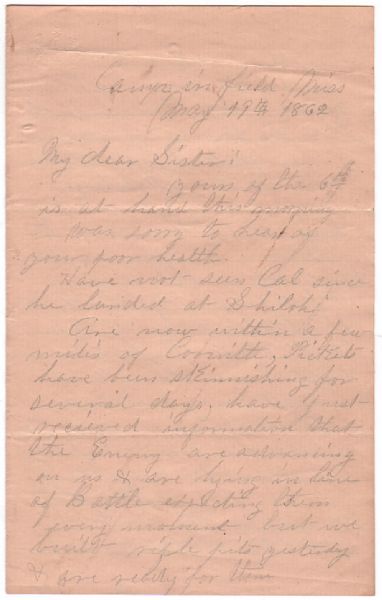 Camp in field Miss
May 19th 1862
My dear Sister!
Yours of the 6th
is at hand this morning
Was sorry to hear of
your poor health.
Have not seen Cal since
he landed at Shiloh!
Are now within a few
miles of Corinth, Pickets
have been skirmishing for
several days, have just
received information that
the Enemy are advancing
on us & are lying in line
of Battle expecting them
every moment but we
built rifle pits yesterday
& are ready for them